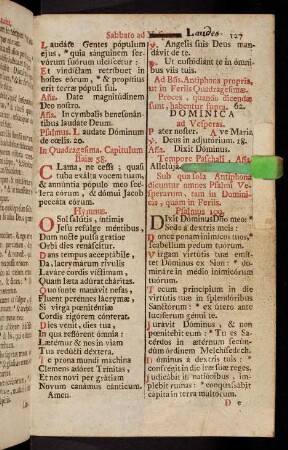 Sabbato ad Laudes 127
Laudáte Gentes pópulum
ejus, * quia sánguinem ser-
vórum suórum ulciscétur:
Et vindictam retríbuet in
hostes eórum, * & propítius
erit terræ pópuli sui.
Aña. Date magnitúdinem
Deo nostro.
Aña. In cymbalis benesonán-
tibus laudate Deum.
Psalmus. Laudate Dóminum
de cœlis. 20.
In Quadragesima. Capitulum
Isaiæ 58.
CLama, ne cesses; quasi
tuba exálta vocem tuam,
& annúntia pópulo meo sce-
lera eórum, & dómui Jacob
peccáta eórum.
Hymnus.
O Sol salútis, íntimis
Jesu refúlge méntibus,
Dum nocte pulsa grátior
Orbi dies renáscitur.
Dans tempus acceptábile,
Da, lacrymárum rívulis
Laváre cordis víctimam,
Quam læta adúrat cháritas.
Quo fonte manávit nefas,
Fluent perénnes lácrymæ,
Si virga pœniténtiæ
Cordis rigórem cónterat.
Dies venit, dies tua,
In qua reflórent ómnia:
Lætémur & nos in viam
Tua redúcti déxtera.
Te prona mundi máchina
Clemens adóret Trínitas,
Et nos novi per grátiam
Novum canámus cánticum.
Amen.
℣. Angelis suis Deus man-
dávit de te.
℟. Ut custódiant te in ómni-
bus viis tuis.
Ad Bñs. Antiphona propria,
ut in Feriis Quadragesimæ.
Preces, quando dicendæ
sunt, habentur supra. 62.
DOMINICA
ad Vesperas.
Pater noster. Ave María
℣. Deus in adjutórium. 18.
Aña. Dixit Dóminus.
Tempore Paschali, Aña
Alleluja.
Sub qua sola Antiphona
dicuntur omnes Psalmi Ve-
sperarum, tam in Domini-
ca, quam in Feriis.
Psalmus 109.
DIxit Dóminus Dño meo: *
Sede a dextris meis:
Donec ponam inimícos tuos, *
scabéllum pedum tuórum.
Virgam virtútis tuæ emít-
tet Dóminus ex Sion: * do-
mináre in médio inimicórum
tuórum.
Tecum princípium in die
virtútis tuæ in splendóribus
Sanctórum: * ex útero ante
lucíferum génui te.
Jurávit Dóminus, & non
pœnitébit eum: * Tu es Sa-
cérdos in ætérnum secún-
dum órdinem Melchísedech.
Dóminus a dextris tuis: *
confrégit in die iræ suæ reges.
Judicábit in natiónibus, im-
plébit ruínas: * conquassábit
cápita in terra multórum.
De